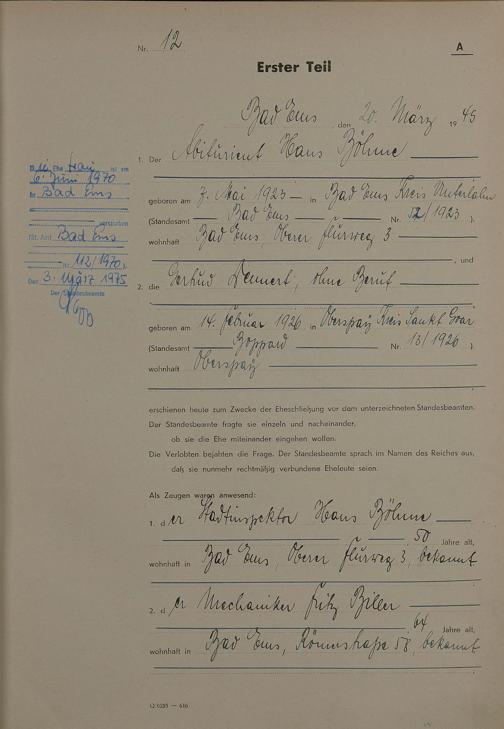 Nr. 12
A
Erster Teil
Bad Ems den 20. März 1945
1. Der Abiturient Hans Böhme
geboren am 7. Mai 1923 in Bad Ems Kreis Unterlahn
(Standesamt Bad Ems Nr. /1923)
wohnhaft Bad Ems Oberer Flurweg 3
, und
2. die Gertrud Dennert, ohne Beruf
geboren am 14. Februar 1926 in Oberspay Kreis Sankt Goar
(Standesamt Boppard Nr. 13/1926).
wohnhaft Oberspay
erschienen heute zum Zwecke der Eheschließung vor dem unterzeichneten Standesbeamten.
Der Standesbeamte fragte sie einzeln und nacheinander,
ob sie die Ehe miteinander eingehen wollen.
Die Verlobten bejahten die Frage. Der Standesbeamte sprach im Namen des Reiches aus,
daß sie nunmehr rechtmäßig verbundene Eheleute seien.
Als Zeugen waren anwesend:
1. der Stadtinspektor Hans Böhme
50 Jahre alt,
wohnhaft in Bad Ems, Oberer Flurweg 3, bekannt
2. der Mechaniker Fritz Biller
64 Jahre alt,
wohnhaft in Bad Ems, Römerstraße 58, bekannt
Die Ehefrau ist am
6. Juni 1970
in Bad Ems
verstorben
Bad Ems
Nr. 112/1970).
Den 3. März 1975
Der Standesbeamte